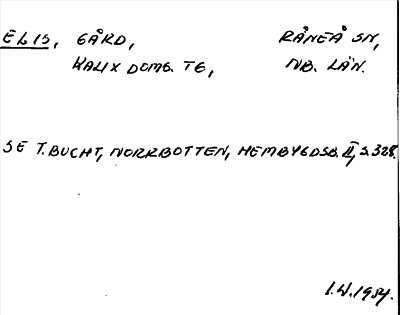 ELIS, GÅRD, RÅNEÅ SN,
KALIX DOMS. TG, NB. LÄN.
SE T. BUCHT, NORRBOTTEN, HEMBYGDSB. II, S. 328.
I.W. 1984.